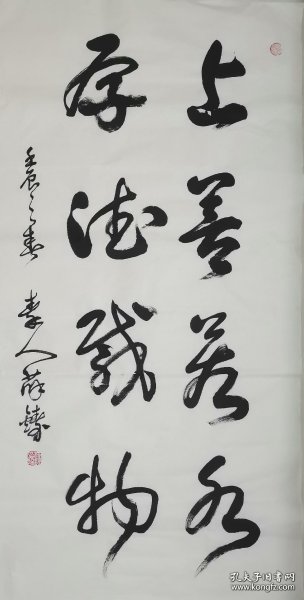 上善若水
厚德载物
壬辰之春 秦人薛铸
孔夫子旧书网